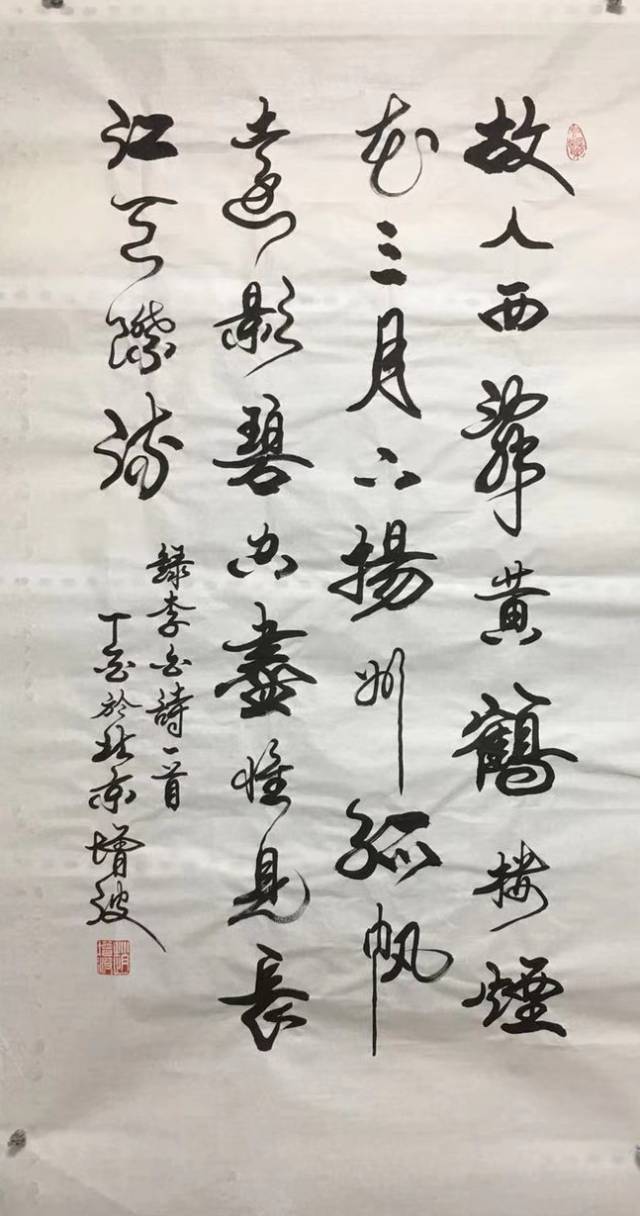 故人西辭黃鶴樓煙
花三月下揚州孤帆
遠影碧空盡惟見長
江天際流
錄李白詩一首
丁酉於北京增波